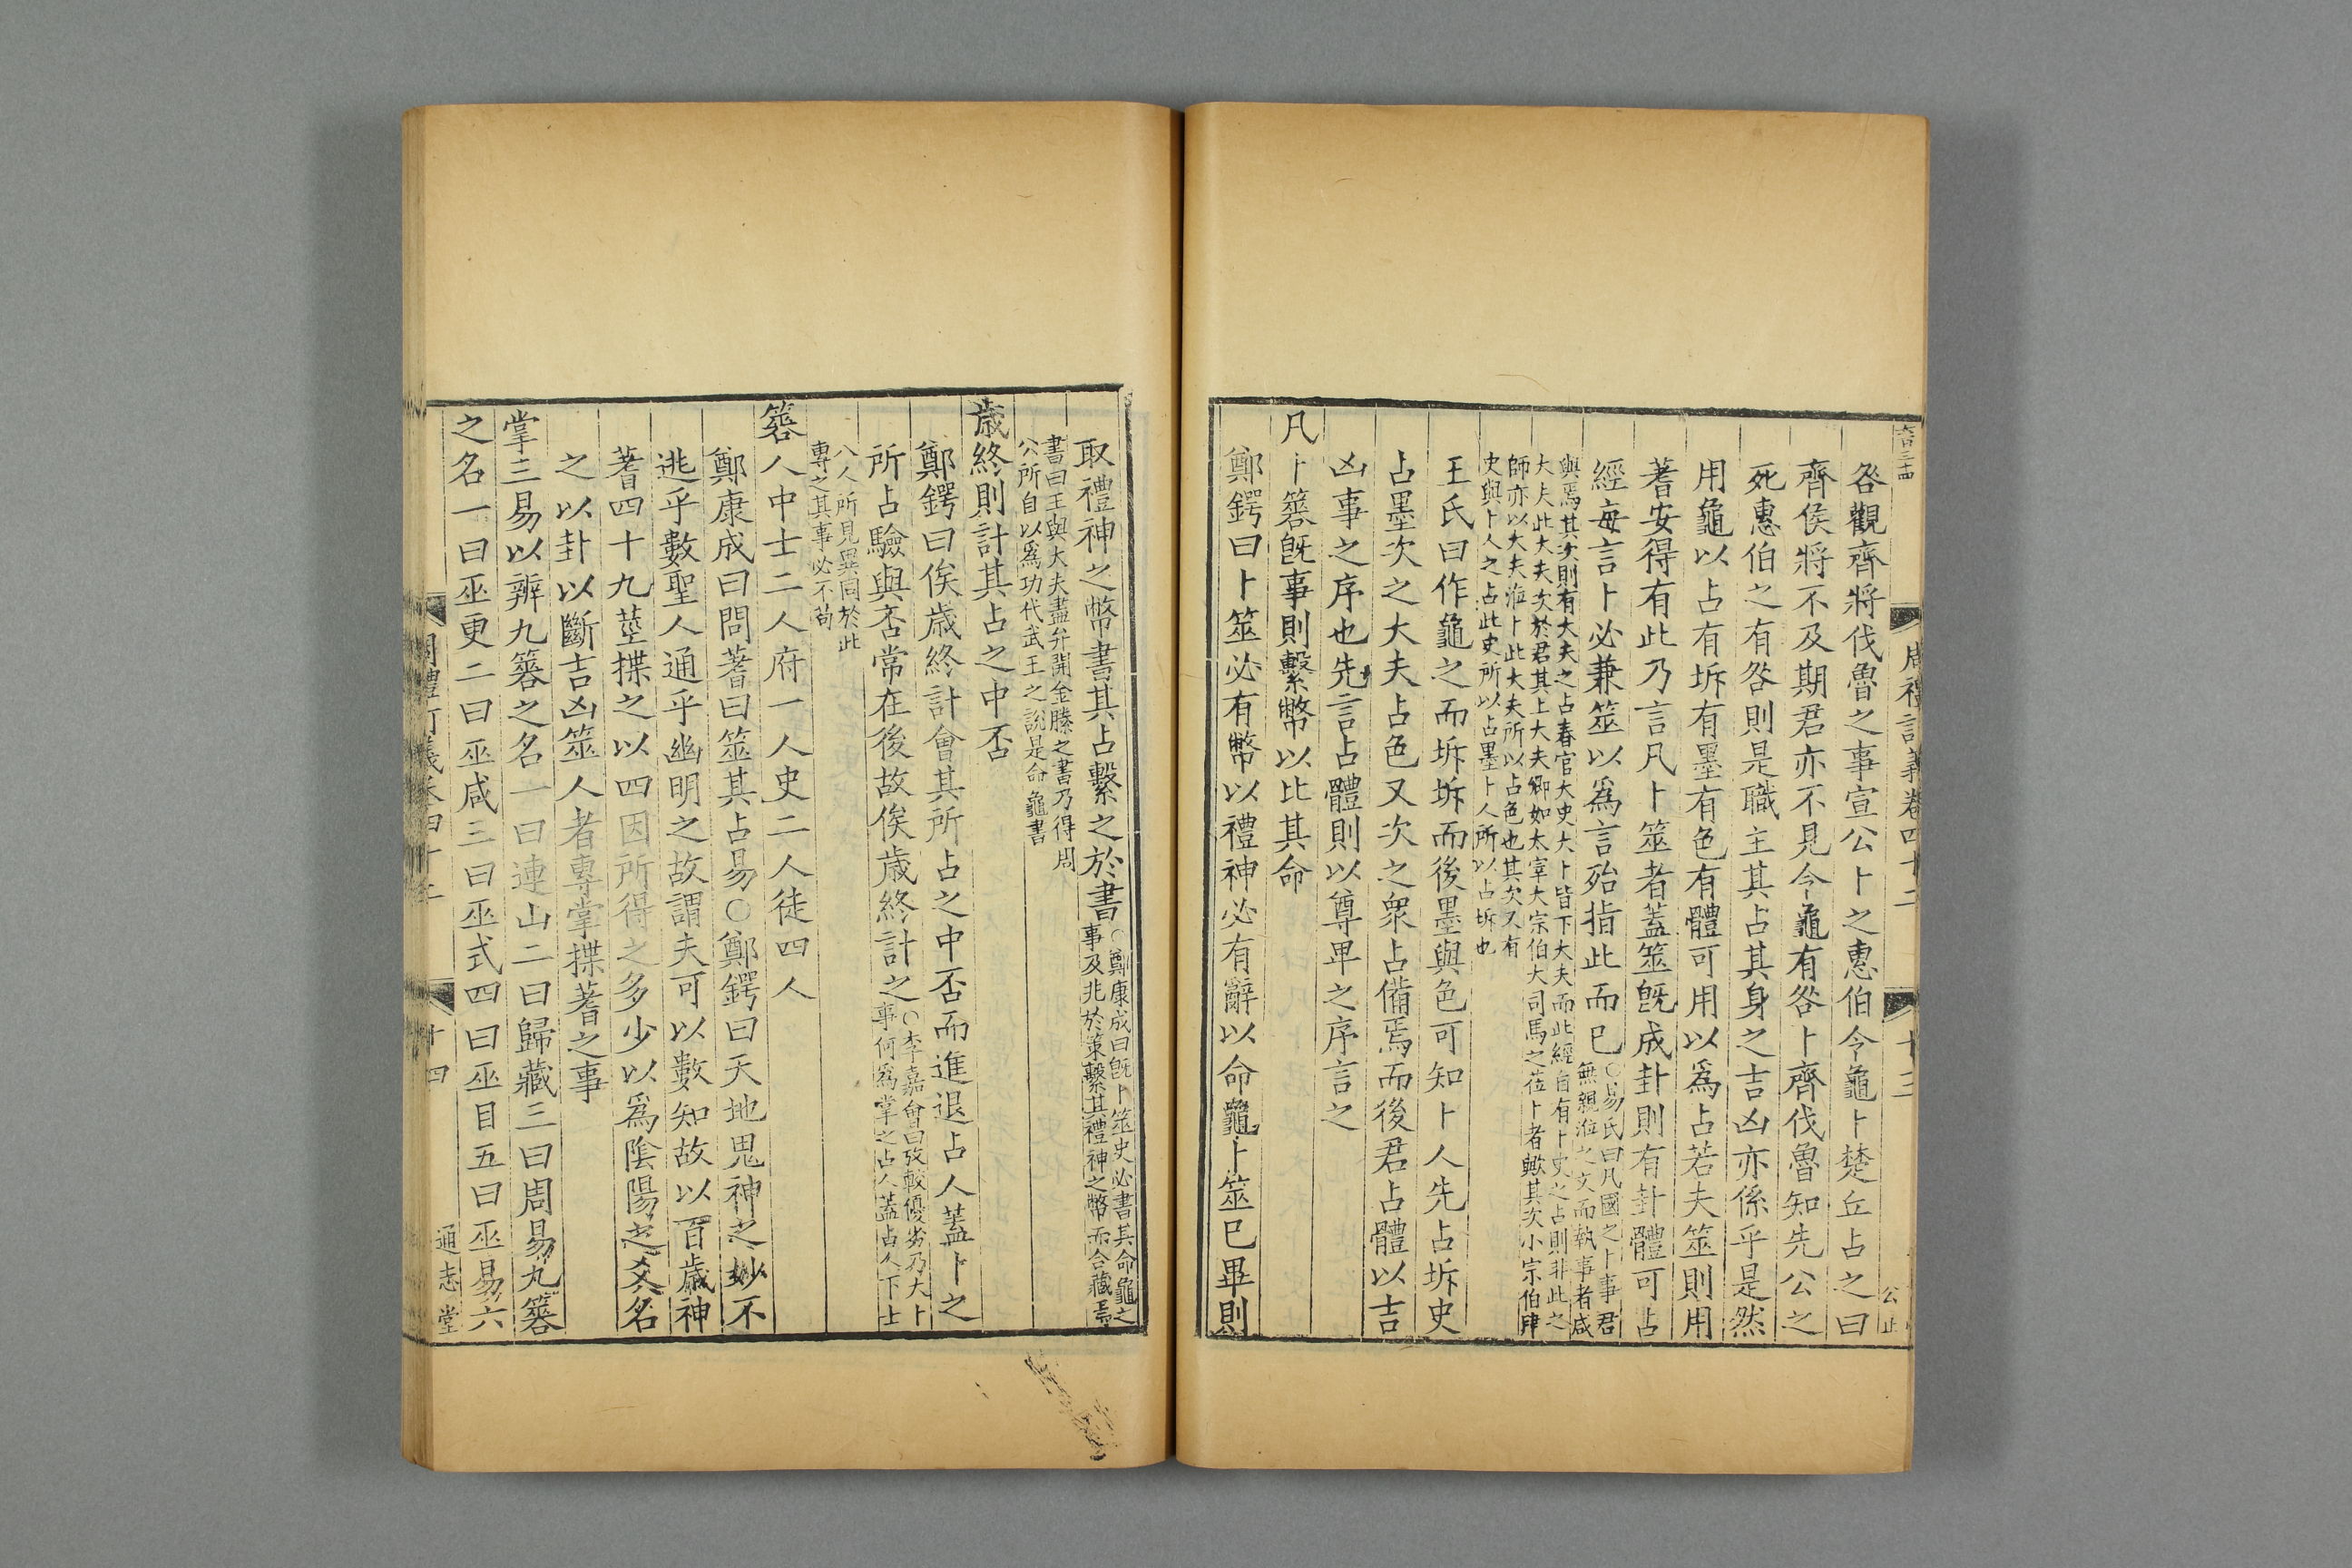 周禮訂義卷四十二
十三
咎觀齊將伐魯之事宣公卜之惠伯令龜卜楚丘占之曰
齊侯將不及期君亦不見今龜有咎卜齊伐魯知先公之
死惠伯之有咎則是職主其占其身之吉凶亦係乎是然
用龜以占有坼有墨有色有體可用以爲占若夫筮則用
蓍安得有此乃言凡卜筮者蓋筮旣成卦則有卦體可占
經每言卜必兼筮以爲言殆指此而已○易氏曰凡國之卜事君
無親涖之文而執事者咸
與焉其次則有大夫之占春官大史大卜皆下大夫而此經自有卜史之占則非此之
大夫此大夫次於君其上大夫卿如太宰大宗伯大司馬之莅卜者歟其次小宗伯肆
師亦以大夫涖卜此大夫所以占色也其次又有
史與卜人之占此史所以占墨卜人所以占坼也
王氏曰作龜之而坼坼而後墨與色可知卜人先占坼史
占墨次之大夫占色又次之衆占備焉而後君占體以吉
凶事之序也先言占體則以尊卑之序言之
凡卜簭旣事則繫幣以比其命
鄭鍔曰卜筮必有幣以禮神必有辭以命龜卜筮巳畢則
取禮神之幣書其占繫之於書○鄭康成曰旣卜筮史必書其命龜之
事及兆於策繫其禮神之幣而合藏焉
書曰王與大夫盡弁開金縢之書乃得周
公所自以爲功代武王之說是命龜書
歳終則計其占之中否
鄭鍔曰俟歳終計會其所占之中否而進退占人蓋卜之
所占驗與否常在後故俟歳終計之○李嘉會曰攷較優劣乃大卜
事何爲掌之占人蓋占人下士
八人所見異同於此
專之其事必不茍
簭人中士二人府一人史二人徒四人
鄭康成曰問蓍曰筮其占易○鄭鍔曰天地鬼神之妙不
逃乎數聖人通乎幽明之故謂夫可以數知故以百歳神
蓍四十九莖揲之以四因所得之多少以爲陰陽之爻名
之以卦以斷吉凶筮人者專掌揲蓍之事
掌三易以辨九簭之名一曰連山二曰歸藏三曰周易九簭
之名一曰巫更二曰巫咸三曰巫式四曰巫目五曰巫易六
十四
通志堂